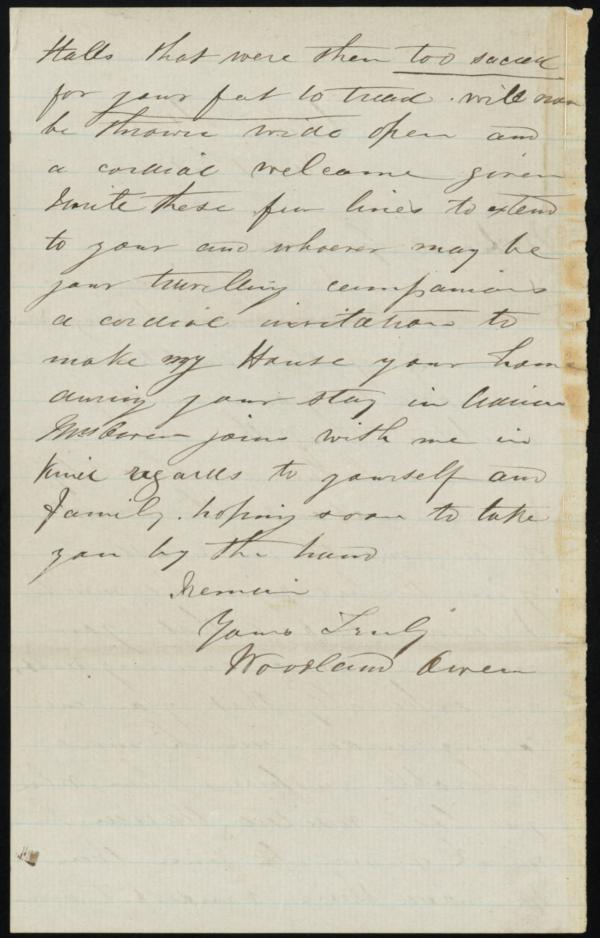 Halls that were then too sacred
for your feet to tread. will now
be thrown wide open and
a cordial welcome given
I write these few lines to extend
to your and whoever may be
your travelling companions
a cordial invitation to
make my House your home
during your stay in Adrian
Mrs Owen joins with me in
kind regards to yourself and
Family. hoping soon to take
you by the hand
I remain
Yours Truly
Woodland Owen